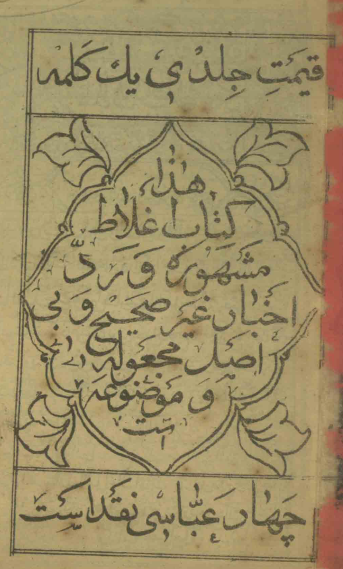 قیمَتِ جِلدْی یك کَلمه
هٰذا
کتاب اغلاط
مشهوره وَ رَدِّ
اخبار غیر صحیح و بی
اصل مجعوله
وَ موضوعه
است
چهار عبّاسی نقد است